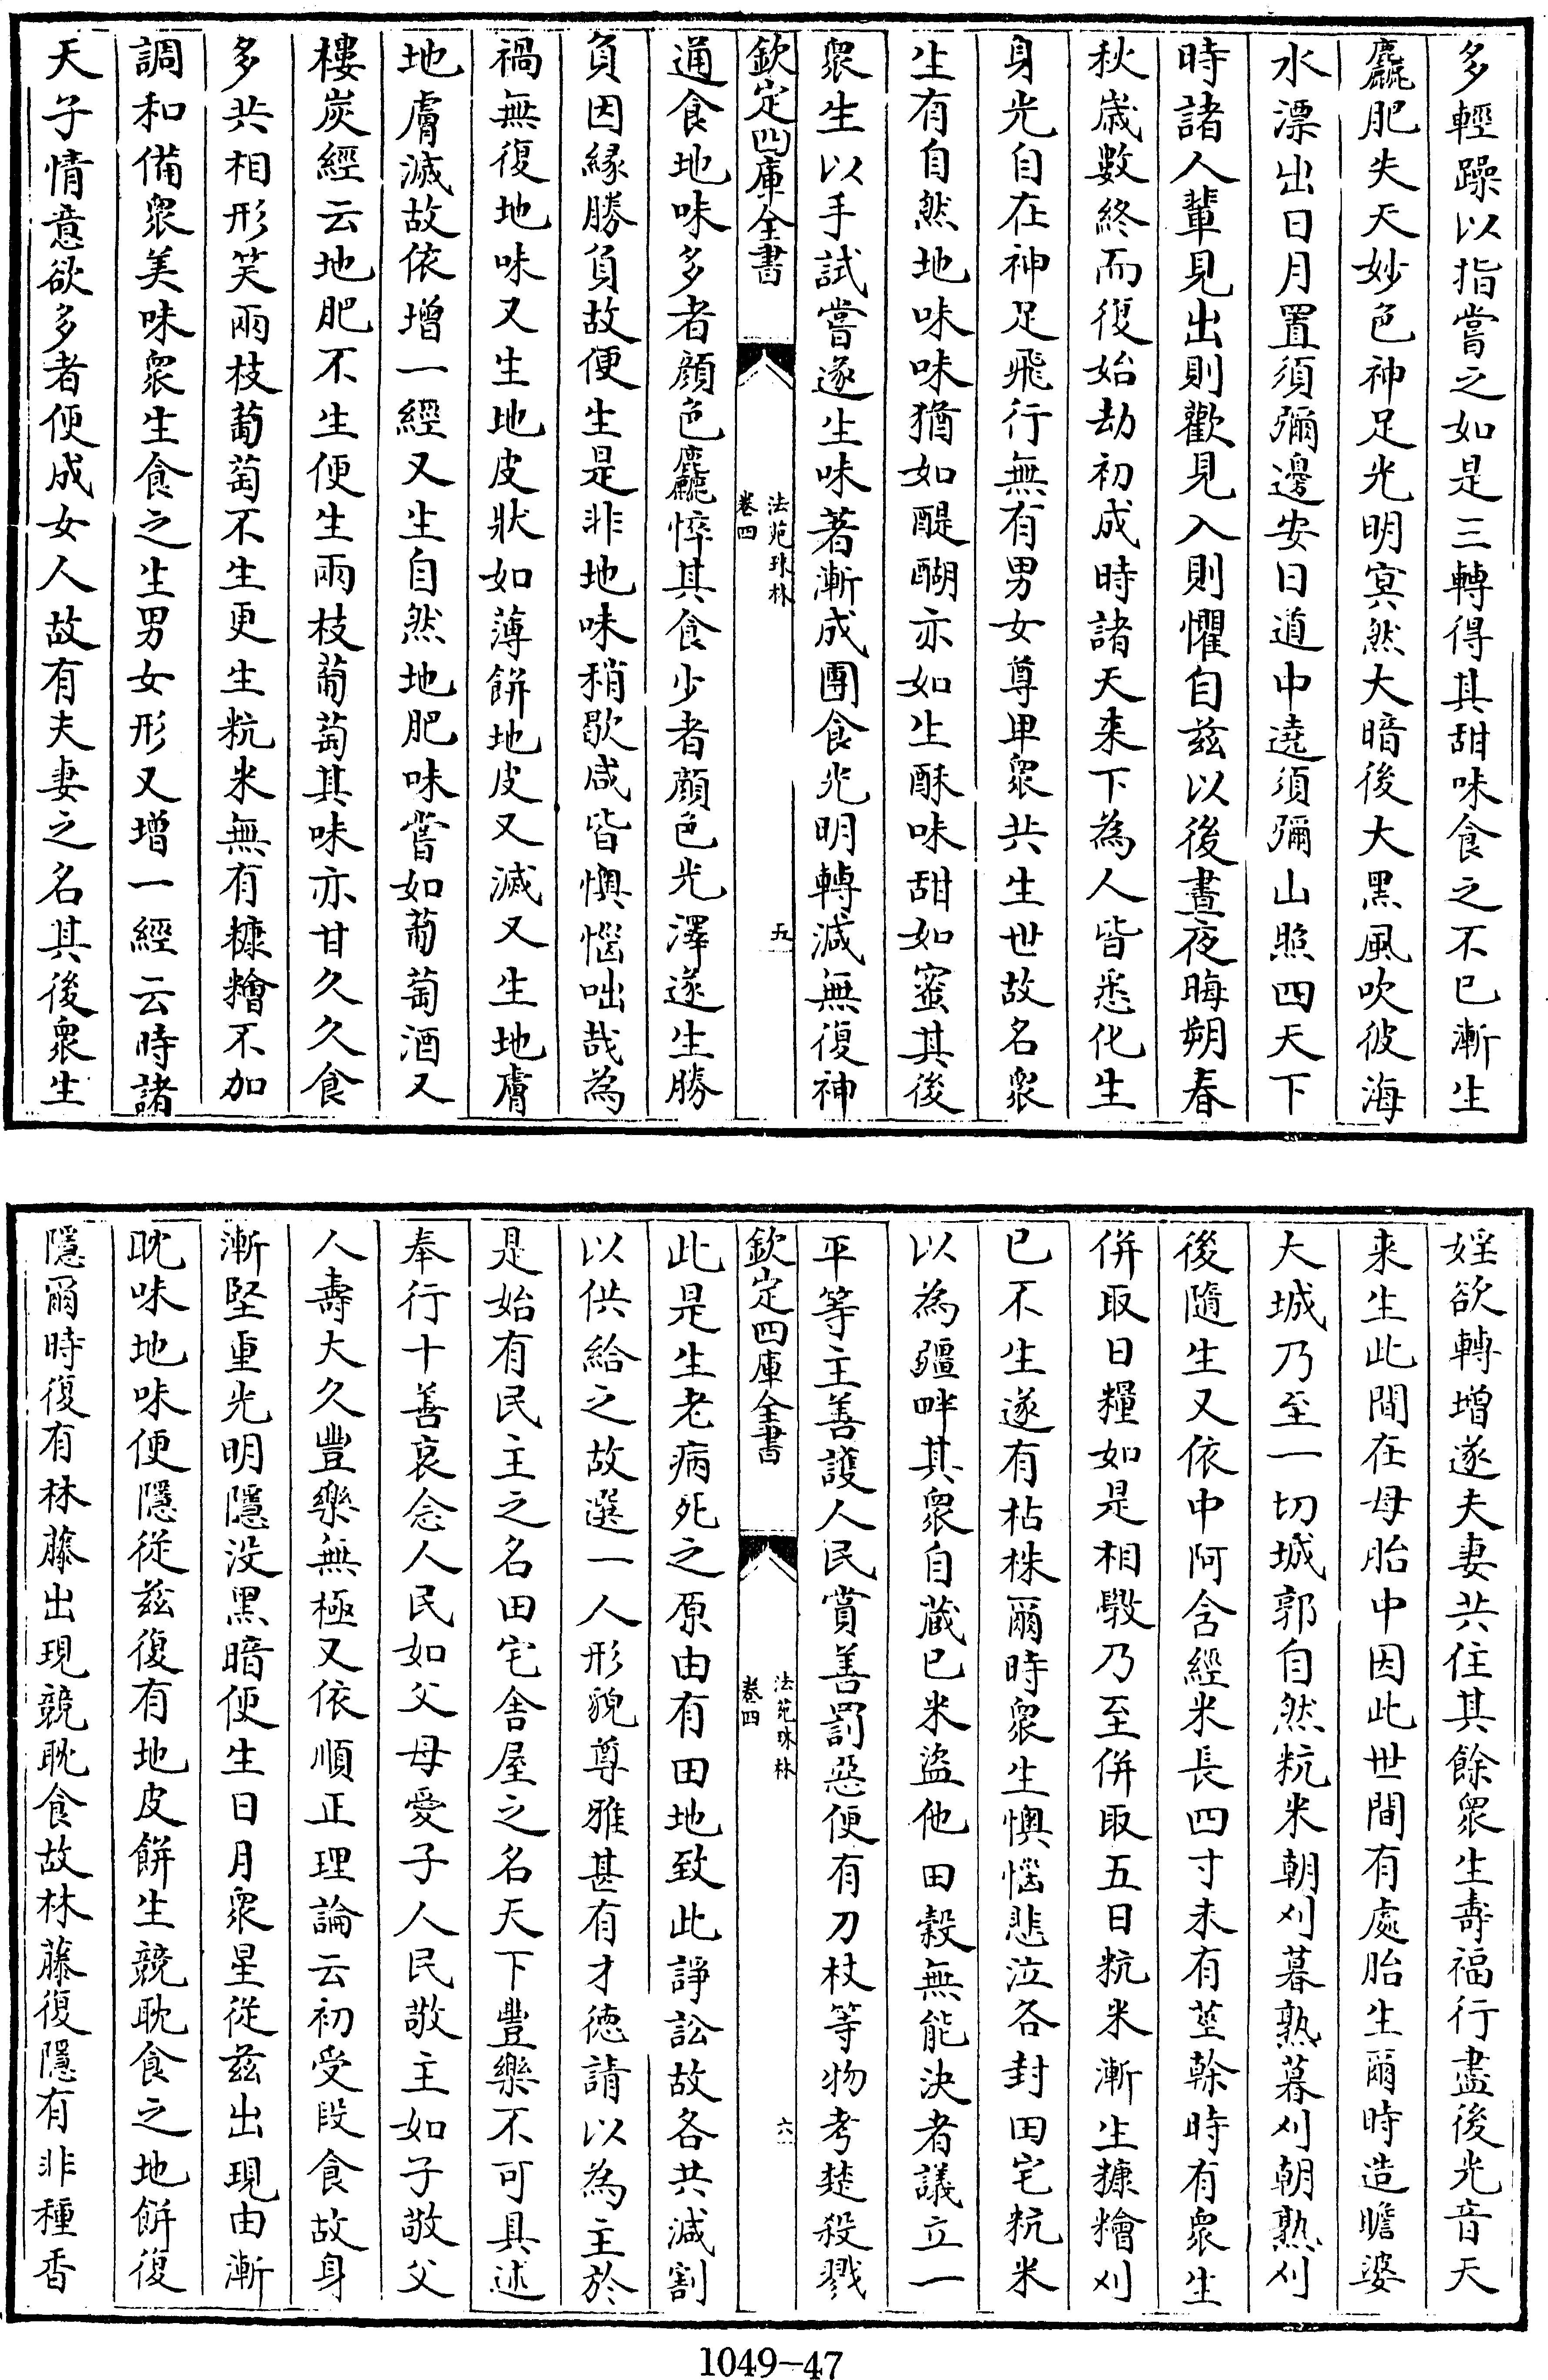 多輕躁以指嘗之如是三轉得其甜味食之不已漸生
麤肥失天妙色神足光明冥然大暗後大黑風吹彼海
水漂出日月置須彌邊安日道中遶須彌山照四天下
時諸人輩見出則歡見入則懼自兹以後晝夜晦朔春
秋歳數終而復始劫初成時諸天来下為人皆悉化生
身光自在神足飛行無有男女尊卑衆共生世故名衆
生有自然地味味猶如醍醐亦如生酥味甜如蜜其後
衆生以手試嘗遂生味著漸成團食光明轉滅無復神
欽定四庫全書
法苑珠林
卷四
五
通食地味多者顔色麤悴其食少者顔色光澤遂生勝
負因緣勝負故便生是非地味稍歇咸皆懊惱咄哉為
禍無復地味又生地皮狀如薄餅地皮又滅又生地膚
地膚滅故依增一經又生自然地肥味嘗如葡萄酒又
樓炭經云地肥不生便生兩枝葡萄其味亦甘久久食
多共相形笑兩枝葡萄不生更生粇米無有糠糩不加
調和備衆美味衆生食之生男女形又增一經云時諸
天子情意欲多者便成女人故有夫妻之名其後衆生
婬欲轉增遂夫妻共住其餘衆生壽福行盡後光音天
来生此間在母胎中因此世間有處胎生爾時造瞻婆
大城乃至一切城郭自然粇米朝刈暮熟暮刈朝熟刈
後隨生又依中阿含經米長四寸未有莖幹時有衆生
併取日糧如是相斆乃至併取五日粇米漸生糠糩刈
已不生遂有枯株爾時衆生懊惱悲泣各封田宅粇米
以為疆畔其衆自蔵已米盜他田榖無能決者議立一
平等主善護人民賞善罰惡便有刀杖等物考楚殺戮
欽定四庫全書
法苑珠林
卷四
六
此是生老病死之原由有田地致此諍訟故各共減割
以供給之故選一人形貌尊雅甚有才德請以為主於
是始有民主之名田宅舍屋之名天下豐樂不可具述
奉行十善哀念人民如父母愛子人民敬主如子敬父
人壽大久豐樂無極又依順正理論云初受段食故身
漸堅重光明隱没黑暗便生日月衆星從兹出現由漸
耽味地味便隱從兹復有地皮餅生競耽食之地餅復
隱爾時復有林藤出現競耽食故林藤復隱有非種香
1049-47